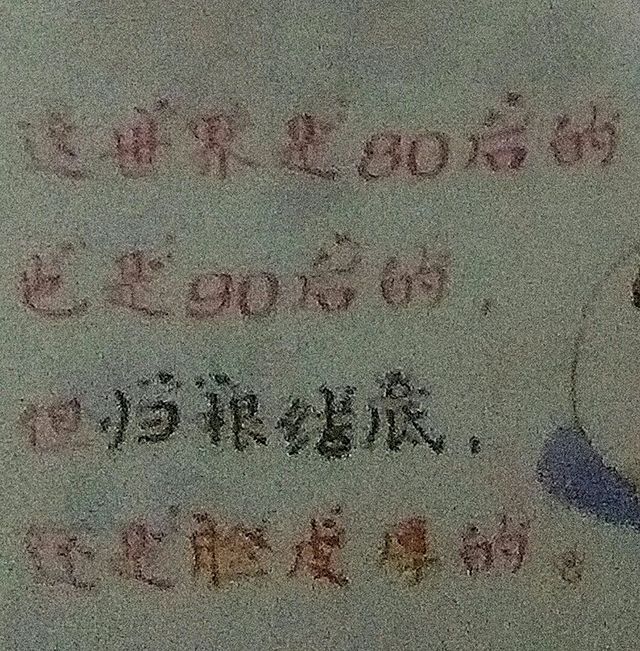 这世界是80后的
也是90后的，
但归根结底，
还是脸皮厚的。